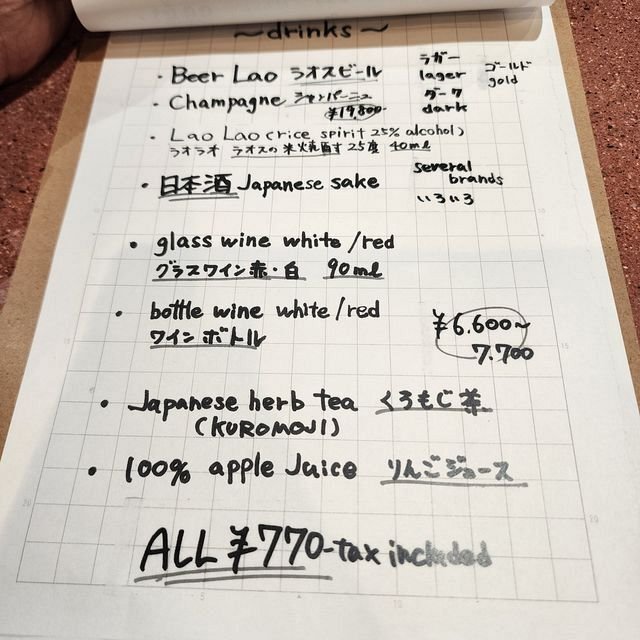 ~drinks~
・Beer Lao ラオスビール ラガー ゴールド
lager gold
・Champagne シャンパーニュ ダーク
¥19,800- dark
・Lao Lao (rice spirit 25% alcohol)
ラオラオ ラオスの米焼酎 25度 40ml
・日本酒 Japanese sake several
brands
いろいろ
・glass wine white/red
グラスワイン赤・白 90ml
・bottle wine white/red
ワインボトル ¥6.600~
7.700
・Japanese herb tea くろもじ茶
(KUROMOJI)
・100% apple Juice りんごジュース
ALL ¥770-tax included